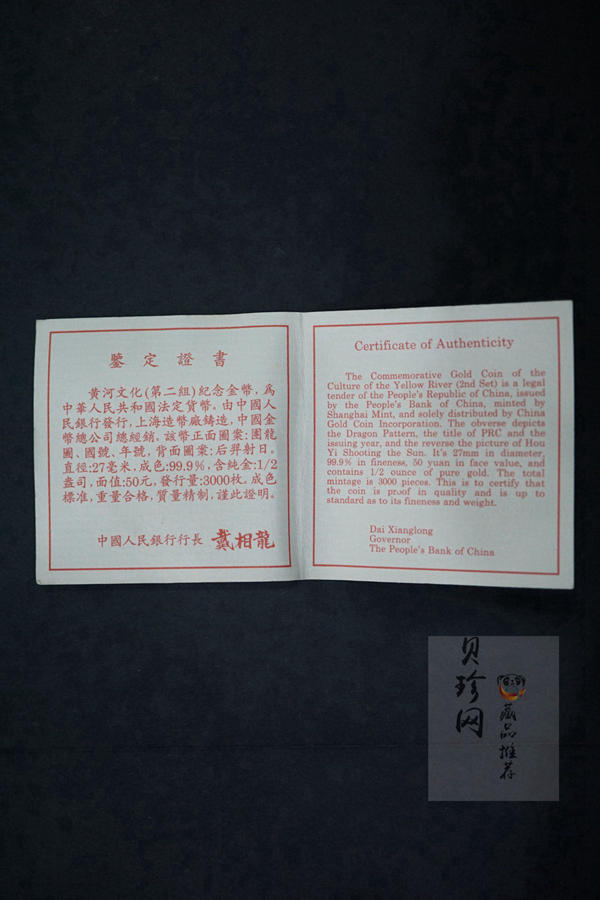 鑒定證書
黃河文化(第二組)紀念金幣，爲
中華人民共和國法定貨幣。由中國人
民銀行發行，上海造幣廠鑄造，中國金
幣總公司總經銷。該幣正面圖案：團龍
圖、國號、年號，背面圖案：后羿射日。
直徑:27毫米，成色:99.9%，含純金:1/2
盎司，面值:50元，發行量:3000枚。成色
標准，重量合格，質量精制，謹此證明。
中國人民銀行行長 戴相龍
Certificate of Authenticity
The Commemorative Gold Coin of the
Culture of the Yellow River (2nd Set) is a legal
tender of the People's Republic of China, issued
by the People's Bank of China, minted by
Shanghai Mint, and solely distributed by China
Gold Coin Incorporation. The obverse depicts
the Dragon Pattern, the title of PRC and the
issuing year, and the reverse the picture of Hou
Yi Shooting the Sun. It's 27mm in diameter,
99.9% in fineness, 50 yuan in face value, and
contains 1/2 ounce of pure gold. The total
mintage is 3000 pieces. This is to certify that
the coin is proof in quality and is up to
standard as to its fineness and weight.
Dai Xianglong
Governor
The People's Bank of China
贝珍网
藏品推荐